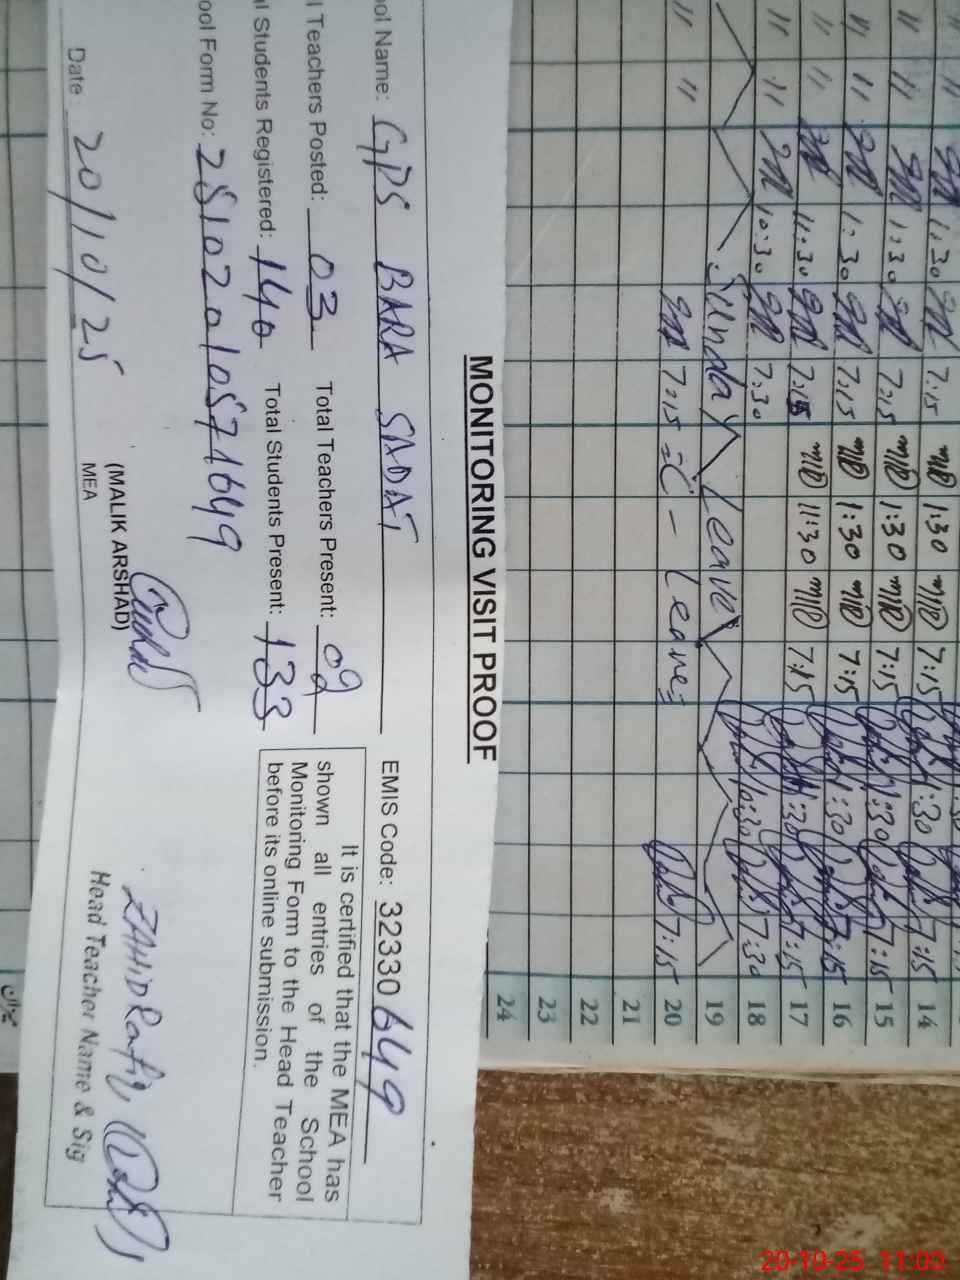 14 7:15 1:30 7:15 MD 1:30 MD 7:15 1:30
15 7:15 1:30 7:15 MD 1:30 MD 7:15 1:30
16 7:15 1:30 7:15 MD 1:30 MD 7:15 1:30
17 7:15 1:30 7:15 MD 11:30 MD 7:15 11:30
18 7:30 10:30 7:30 10:30
19 Sunday Leave
20 7:15 Leave 7:15
21
22
23
24
MONITORING VISIT PROOF
ool Name: GPS BARA SADAT EMIS Code: 32330649
l Teachers Posted: 03 Total Teachers Present: 02
al Students Registered: 140 Total Students Present: 133
It is certified that the MEA has
shown all entries of the School
Monitoring Form to the Head Teacher
before its online submission.
ool Form No: 2510201057649
(MALIK ARSHAD)
MEA
Date: 20/10/25
ZAHID Rafiq
Head Teacher Name & Sig
20-10-25 11:00